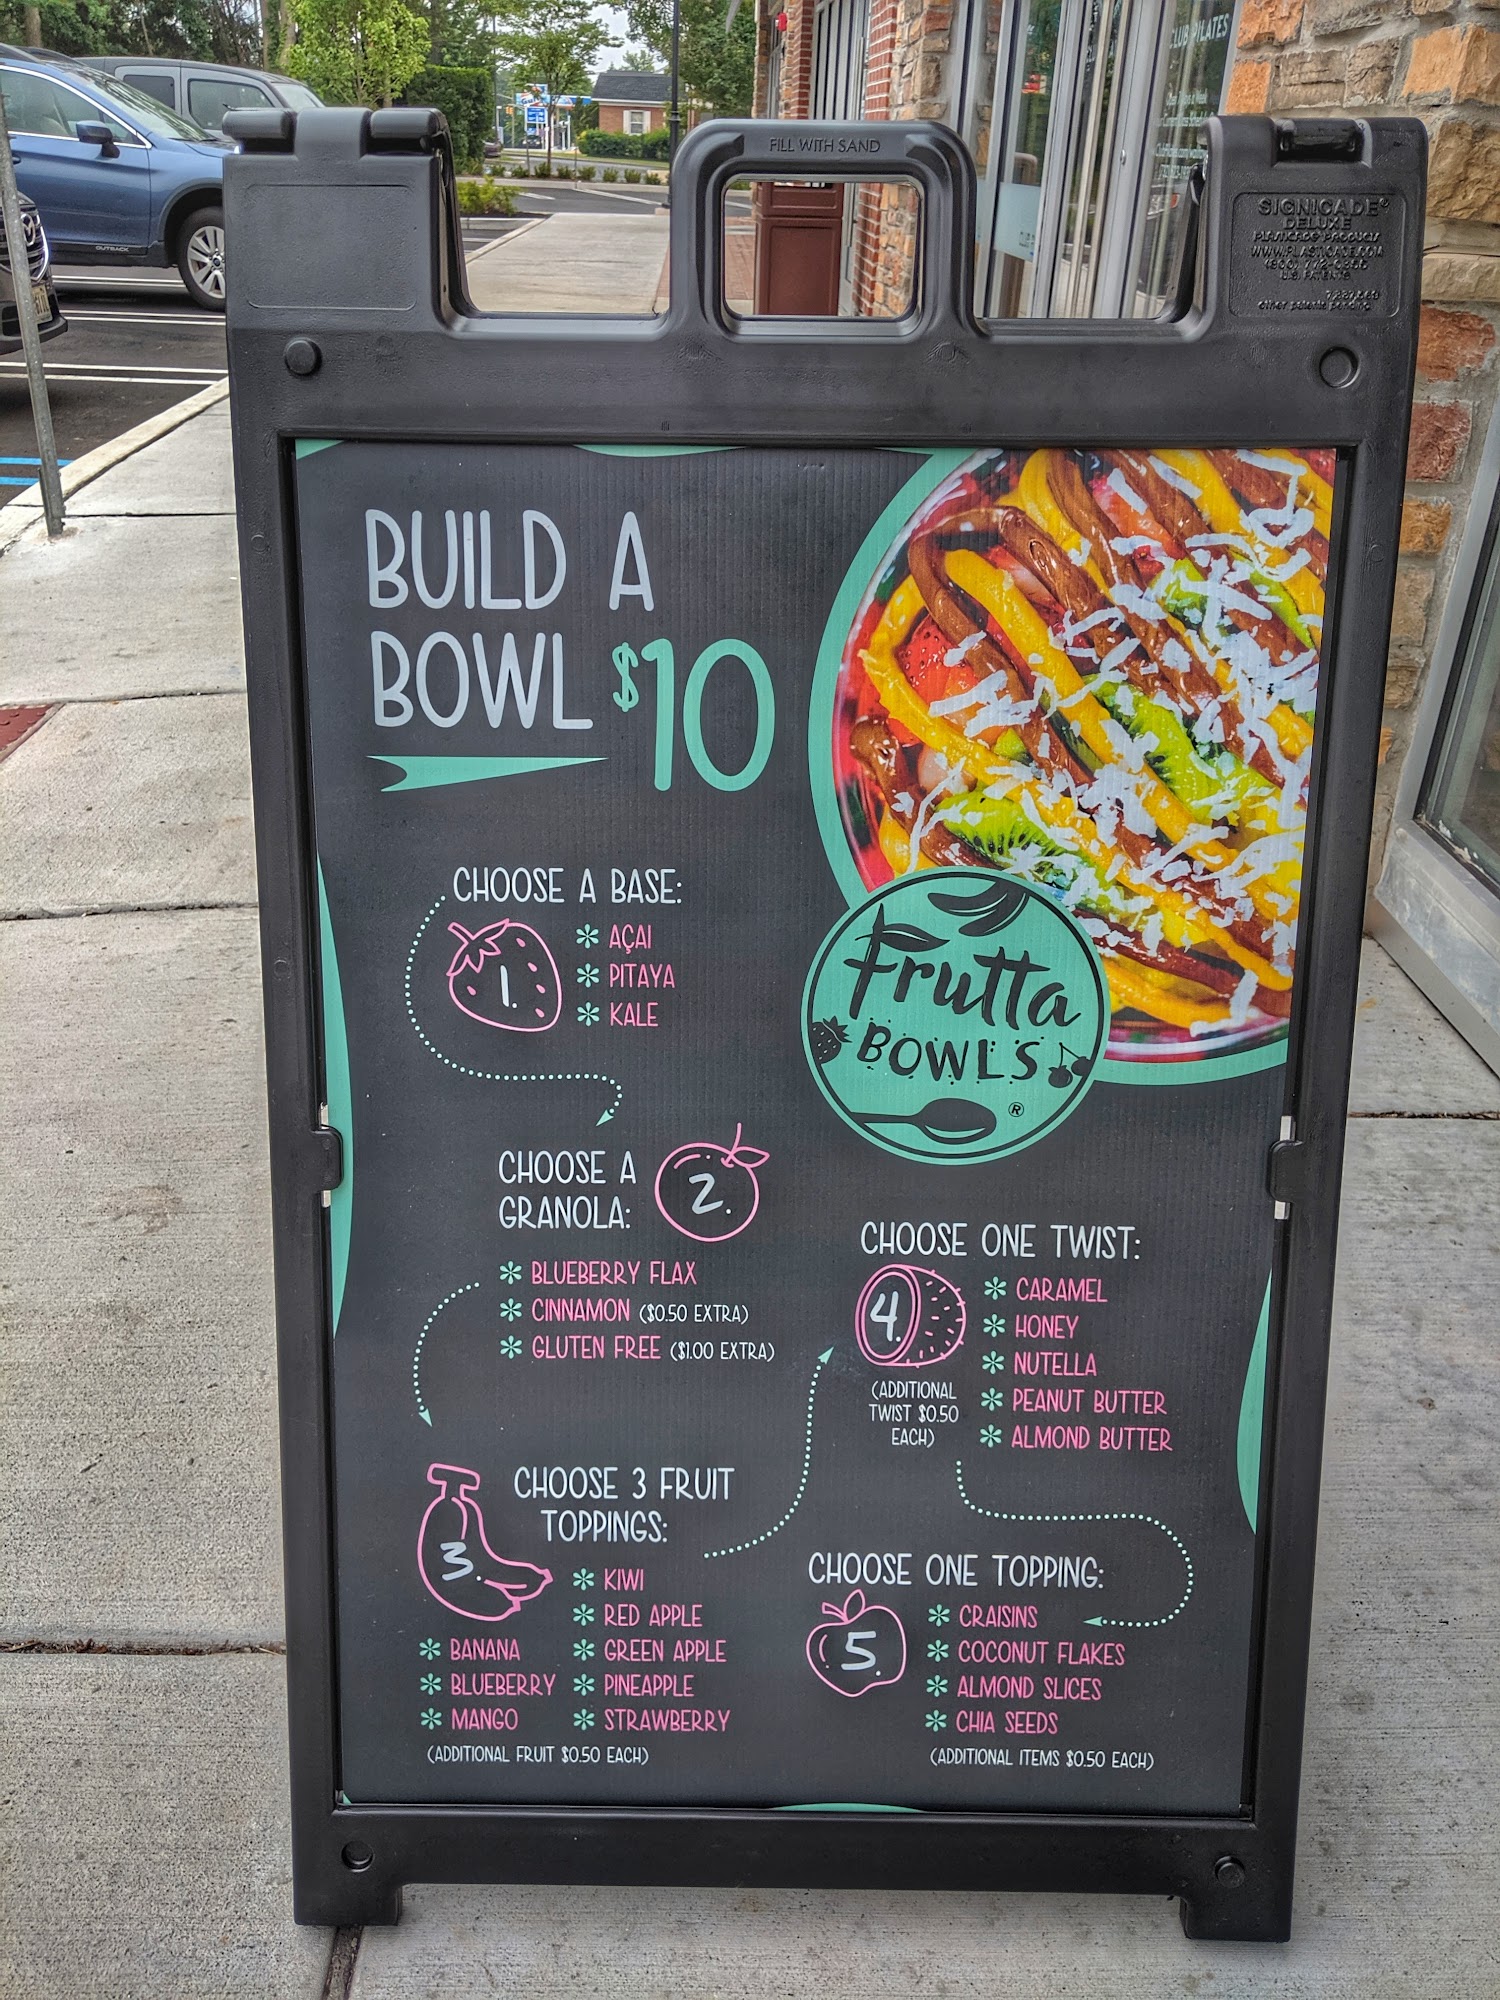 FILL WITH SAND
SIGNICADE®
DELUXE
PLASTICADE PRODUCTS
WWW.PLASTICADE.COM
U.S. PATENTS
other patents pending
CLUB PILATES
OUTBACK
BUILD A
BOWL $10
CHOOSE A BASE:
1.
AÇAI
PITAYA
KALE
Frutta
BOWLS
®
CHOOSE A
GRANOLA:
2.
BLUEBERRY FLAX
CINNAMON ($0.50 EXTRA)
GLUTEN FREE ($1.00 EXTRA)
CHOOSE 3 FRUIT
TOPPINGS:
3.
KIWI
RED APPLE
BANANA
GREEN APPLE
BLUEBERRY
PINEAPPLE
MANGO
STRAWBERRY
(ADDITIONAL FRUIT $0.50 EACH)
CHOOSE ONE TWIST:
4.
CARAMEL
HONEY
NUTELLA
PEANUT BUTTER
ALMOND BUTTER
(ADDITIONAL
TWIST $0.50
EACH)
CHOOSE ONE TOPPING:
5.
CRAISINS
COCONUT FLAKES
ALMOND SLICES
CHIA SEEDS
(ADDITIONAL ITEMS $0.50 EACH)